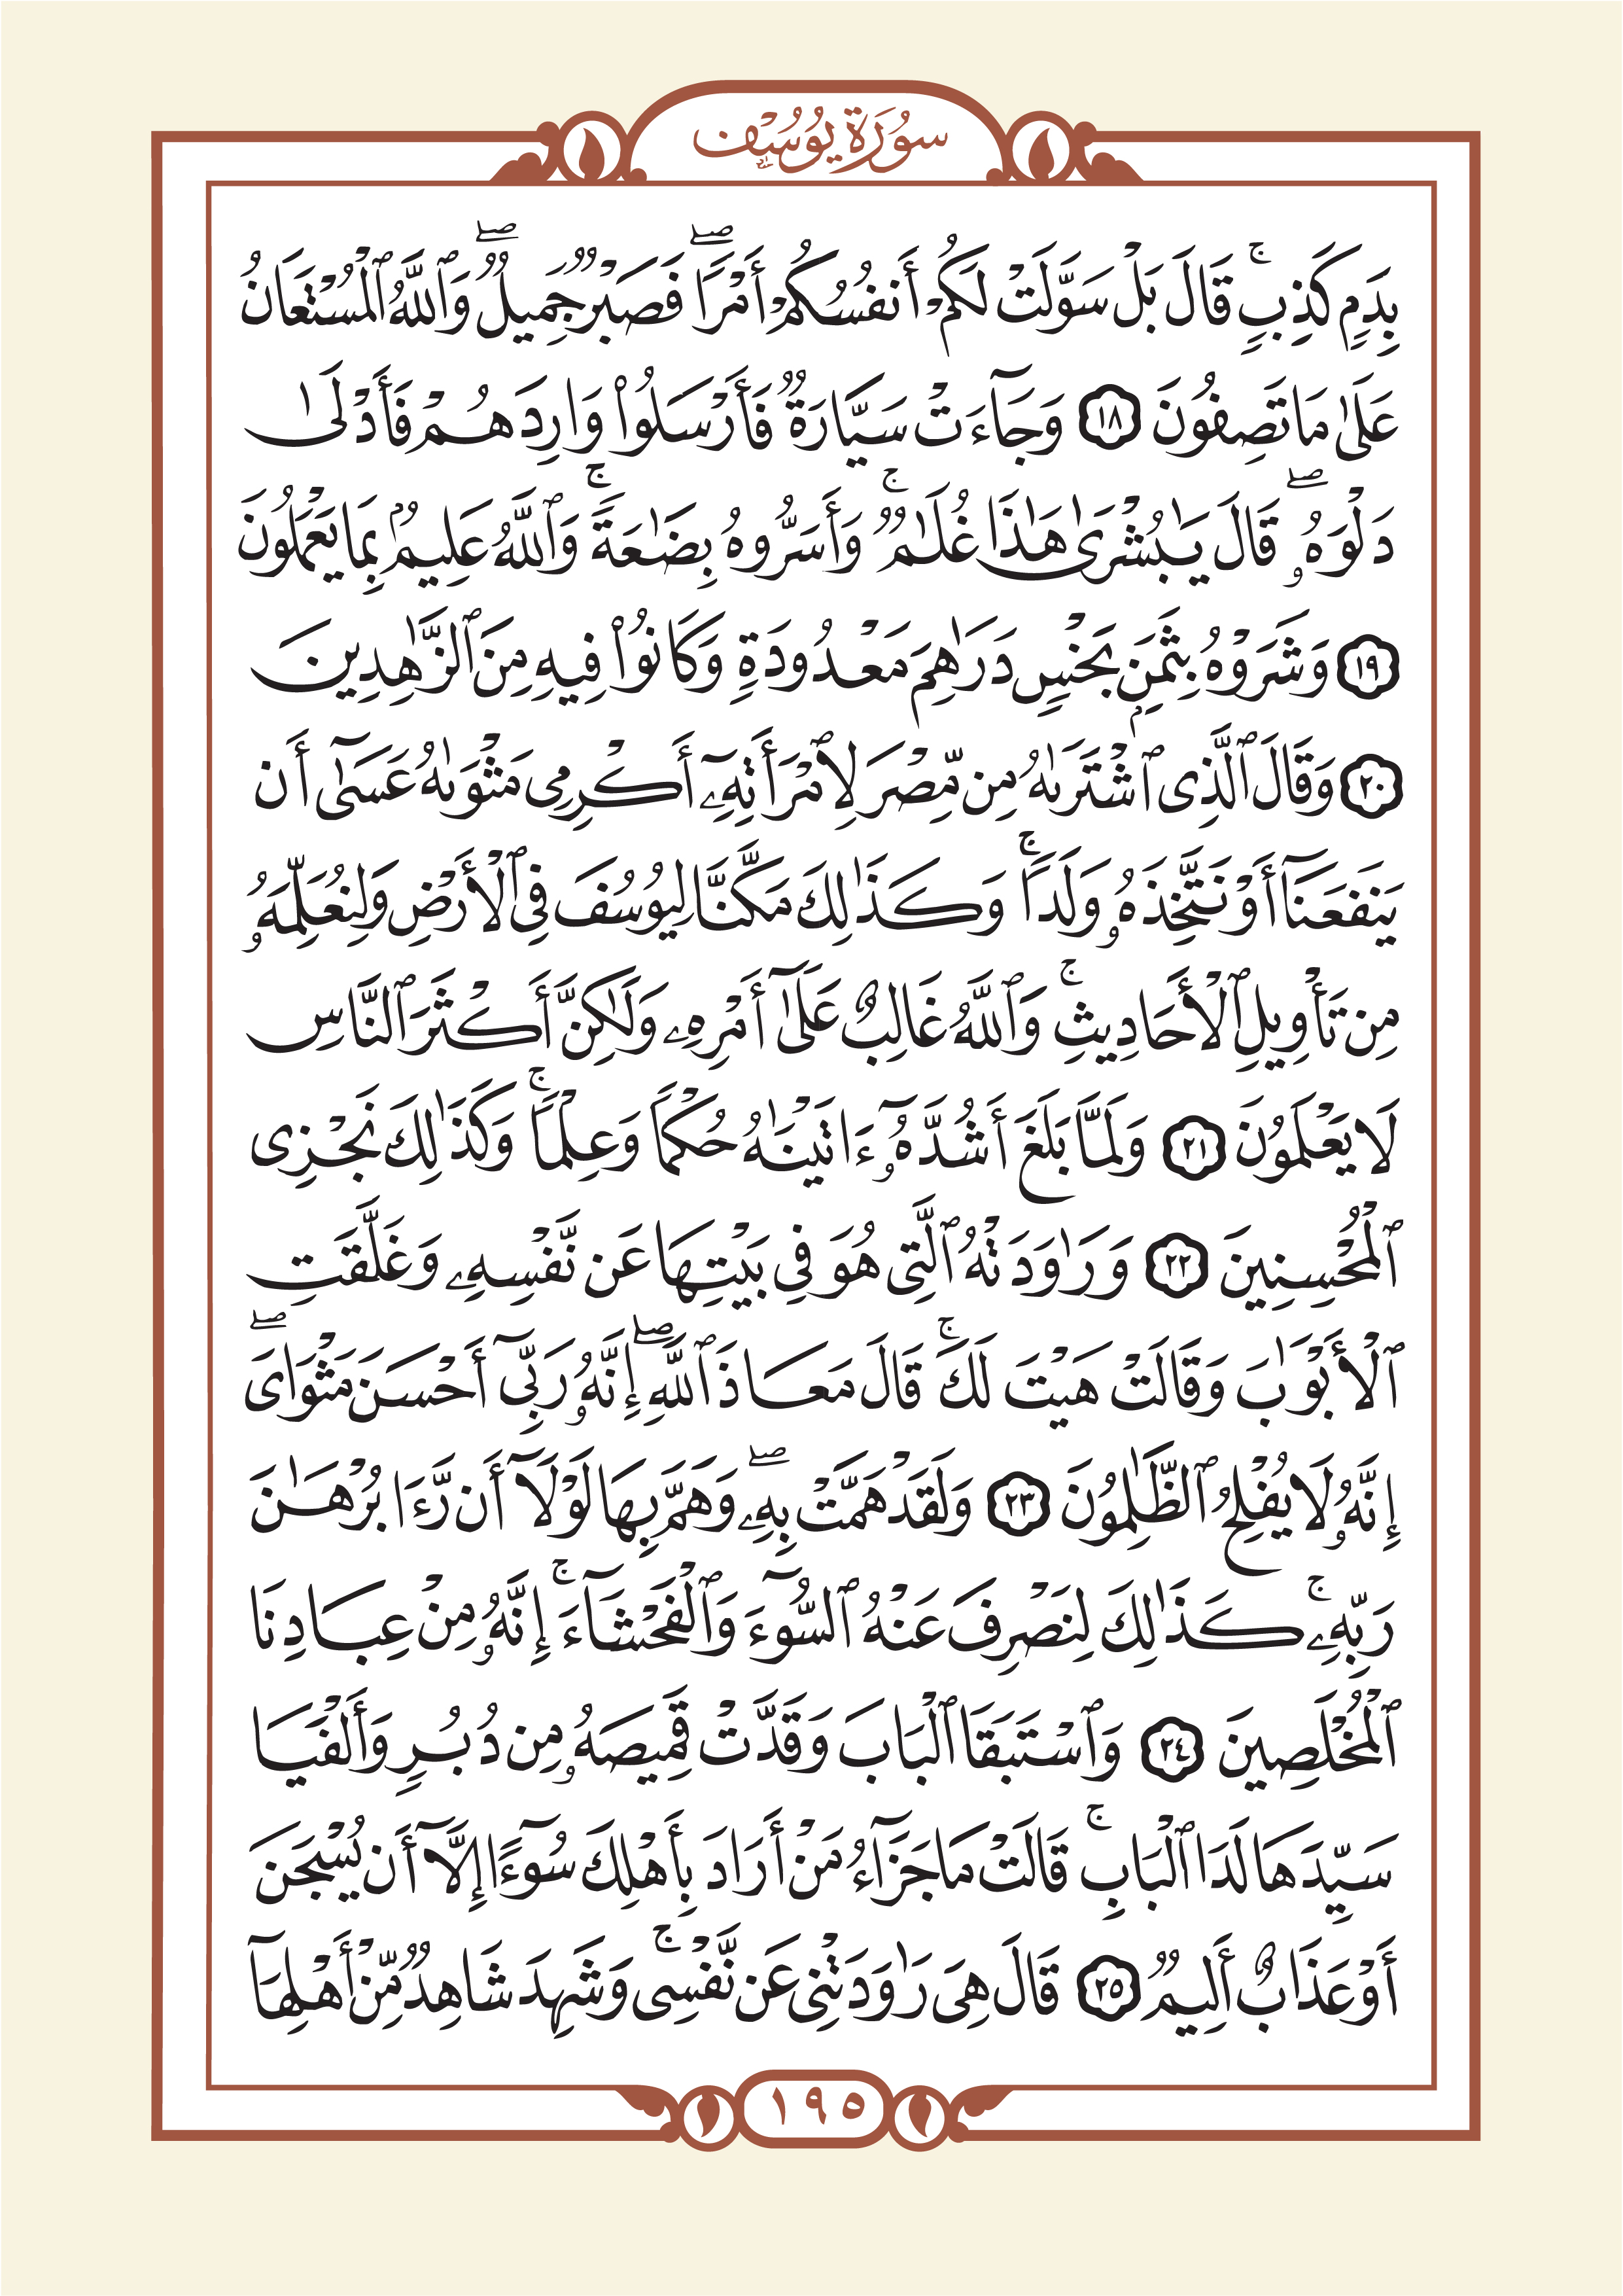 سُورَةُ يُوسُف
بِدَمٍ كَذِبٍۚ قَالَ بَلْ سَوَّلَتْ لَكُمْ أَنفُسُكُمْ أَمْرًاۖ فَصَبْرٌ جَمِيلٌۖ وَٱللَّهُ ٱلْمُسْتَعَانُ
عَلَىٰ مَا تَصِفُونَ ١٨ وَجَآءَتْ سَيَّارَةٌ فَأَرْسَلُوا۟ وَارِدَهُمْ فَأَدْلَىٰ
دَلْوَهُۥۖ قَالَ يَـٰبُشْرَىٰ هَـٰذَا غُلَـٰمٌۚ وَأَسَرُّوهُ بِضَـٰعَةًۚ وَٱللَّهُ عَلِيمٌۢ بِمَا يَعْمَلُونَ
١٩ وَشَرَوْهُ بِثَمَنٍۭ بَخْسٍ دَرَٰهِمَ مَعْدُودَةٍ وَكَانُوا۟ فِيهِ مِنَ ٱلزَّٰهِدِينَ
٢٠ وَقَالَ ٱلَّذِى ٱشْتَرَىٰهُ مِن مِّصْرَ لِٱمْرَأَتِهِۦٓ أَكْرِمِى مَثْوَىٰهُ عَسَىٰٓ أَن
يَنفَعَنَآ أَوْ نَتَّخِذَهُۥ وَلَدًاۚ وَكَذَٰلِكَ مَكَّنَّا لِيُوسُفَ فِى ٱلْأَرْضِ وَلِنُعَلِّمَهُۥ
مِن تَأْوِيلِ ٱلْأَحَادِيثِۚ وَٱللَّهُ غَالِبٌ عَلَىٰٓ أَمْرِهِۦ وَلَـٰكِنَّ أَكْثَرَ ٱلنَّاسِ
لَا يَعْلَمُونَ ٢١ وَلَمَّا بَلَغَ أَشُدَّهُۥٓ ءَاتَيْنَـٰهُ حُكْمًا وَعِلْمًاۚ وَكَذَٰلِكَ نَجْزِى
ٱلْمُحْسِنِينَ ٢٢ وَرَٰوَدَتْهُ ٱلَّتِى هُوَ فِى بَيْتِهَا عَن نَّفْسِهِۦ وَغَلَّقَتِ
ٱلْأَبْوَٰبَ وَقَالَتْ هَيْتَ لَكَۚ قَالَ مَعَاذَ ٱللَّهِۖ إِنَّهُۥ رَبِّىٓ أَحْسَنَ مَثْوَاىَۖ
إِنَّهُۥ لَا يُفْلِحُ ٱلظَّـٰلِمُونَ ٢٣ وَلَقَدْ هَمَّتْ بِهِۦۖ وَهَمَّ بِهَا لَوْلَآ أَن رَّءَا بُرْهَـٰنَ
رَبِّهِۦۚ كَذَٰلِكَ لِنَصْرِفَ عَنْهُ ٱلسُّوٓءَ وَٱلْفَحْشَآءَۚ إِنَّهُۥ مِنْ عِبَادِنَا
ٱلْمُخْلَصِينَ ٢٤ وَٱسْتَبَقَا ٱلْبَابَ وَقَدَّتْ قَمِيصَهُۥ مِن دُبُرٍ وَأَلْفَيَا
سَيِّدَهَا لَدَا ٱلْبَابِۚ قَالَتْ مَا جَزَآءُ مَنْ أَرَادَ بِأَهْلِكَ سُوٓءًا إِلَّآ أَن يُسْجَنَ
أَوْ عَذَابٌ أَلِيمٌ ٢٥ قَالَ هِىَ رَٰوَدَتْنِى عَن نَّفْسِىۚ وَشَهِدَ شَاهِدٌ مِّنْ أَهْلِهَآ
١٩٥